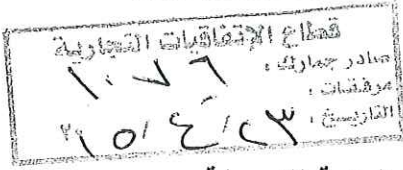 قطاع الإتفاقيات التجارية
صادر جمارك : ١٠٧٦
مرفقات :
التاريخ : ٢٣ / ٤ / ٢٠١٥